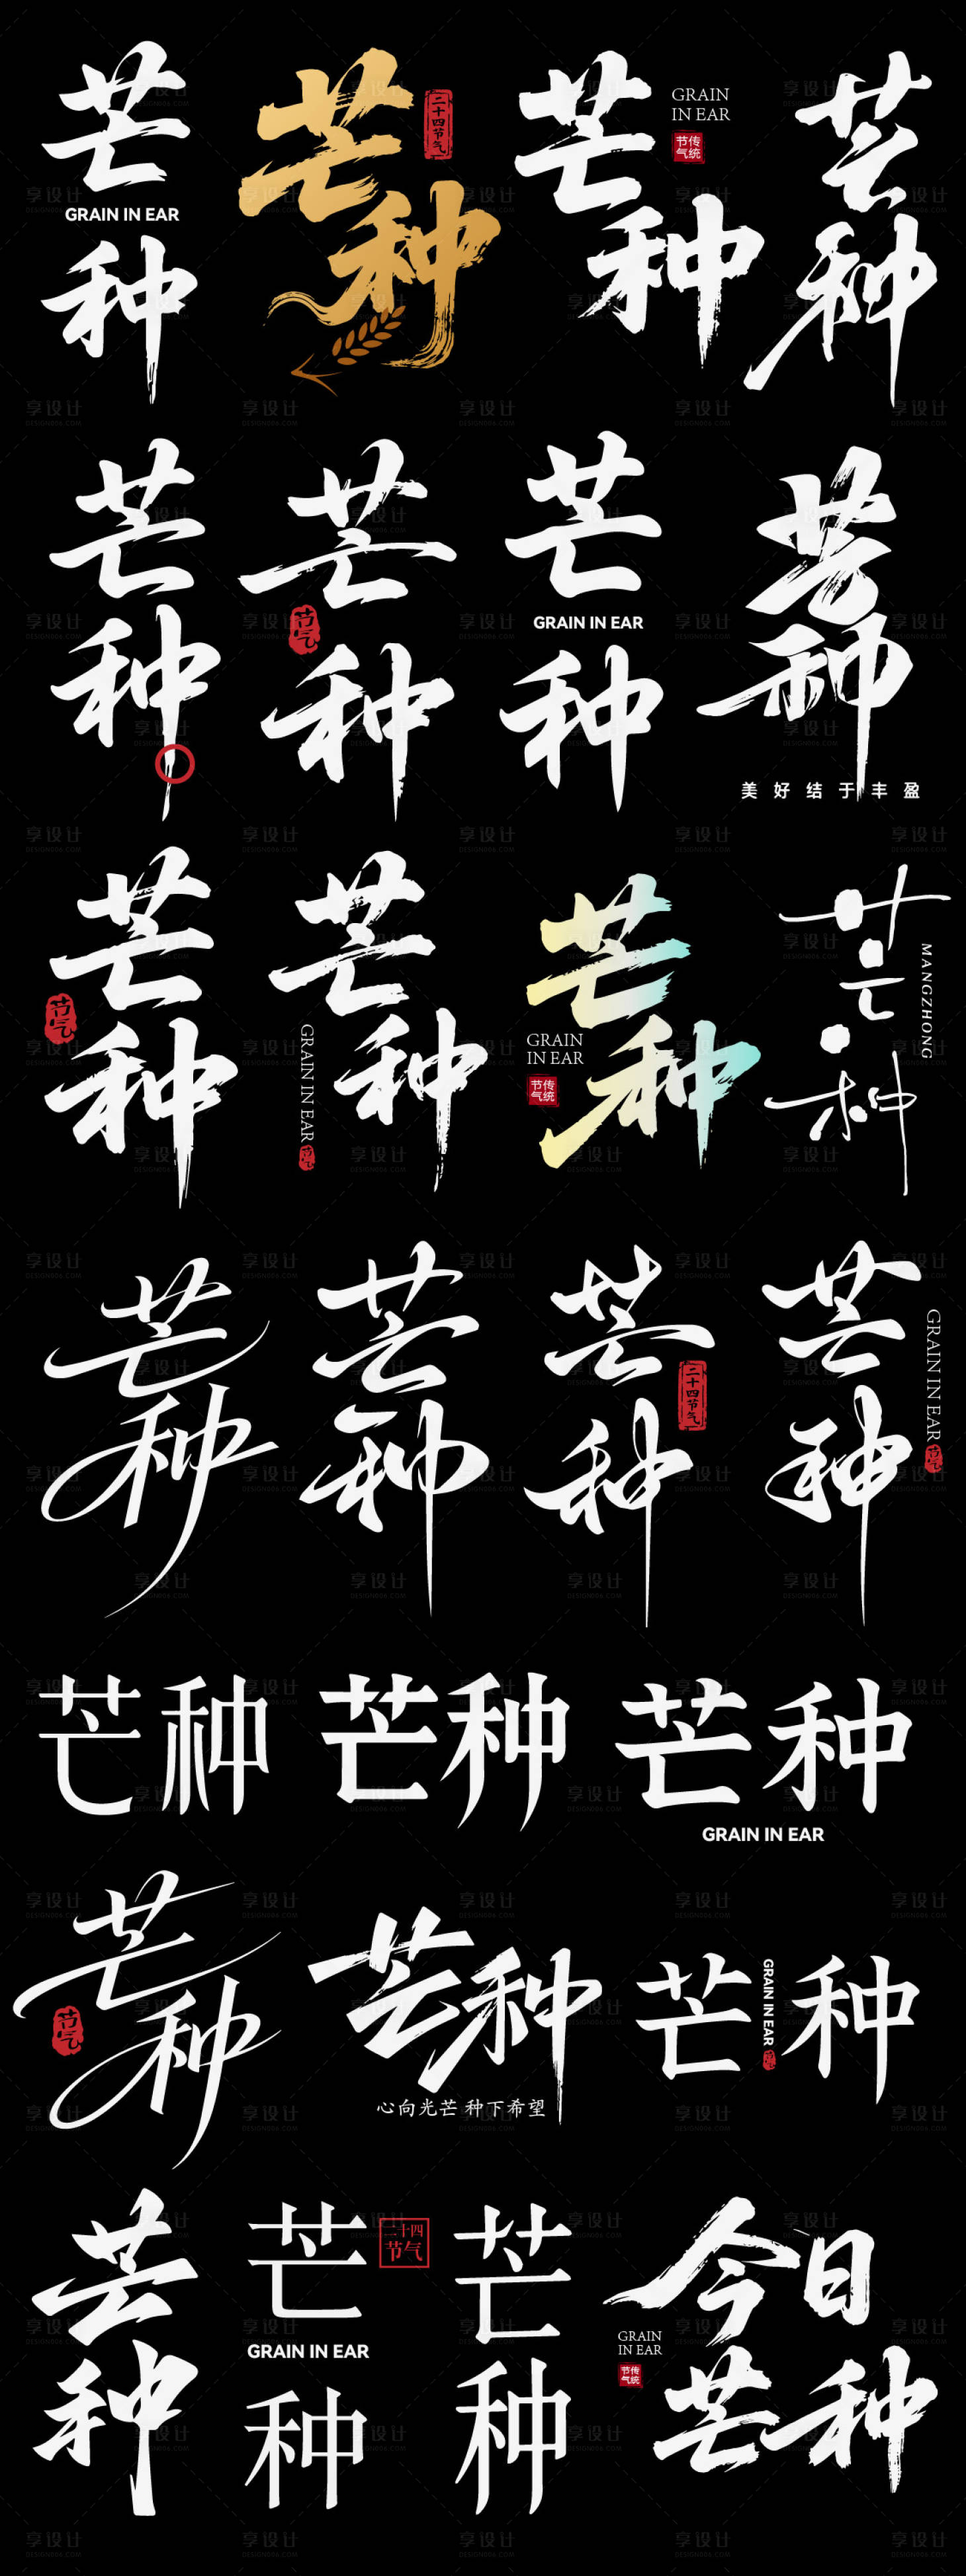 芒
GRAIN IN EAR
种
芒
种
二十四节气
芒
种
GRAIN
IN EAR
传统
节气
芒
种
芒
种
芒
节气
种
芒
GRAIN IN EAR
种
芒
种
美好结于丰盈
芒
种
节气
芒
种
GRAIN IN EAR
节气
芒
种
GRAIN
IN EAR
传统
节气
芒
种
MANGZHONG
芒
种
芒
种
芒
种
二十四节气
芒
种
GRAIN IN EAR
节气
芒种
芒种
芒种
GRAIN IN EAR
芒
种
节气
芒种
心向光芒 种下希望
芒
GRAIN IN EAR
节气
种
芒
种
芒
二十四
节气
GRAIN IN EAR
种
芒
种
今日
芒种
GRAIN
IN EAR
传统
节气
享设计
DESIGN006.COM